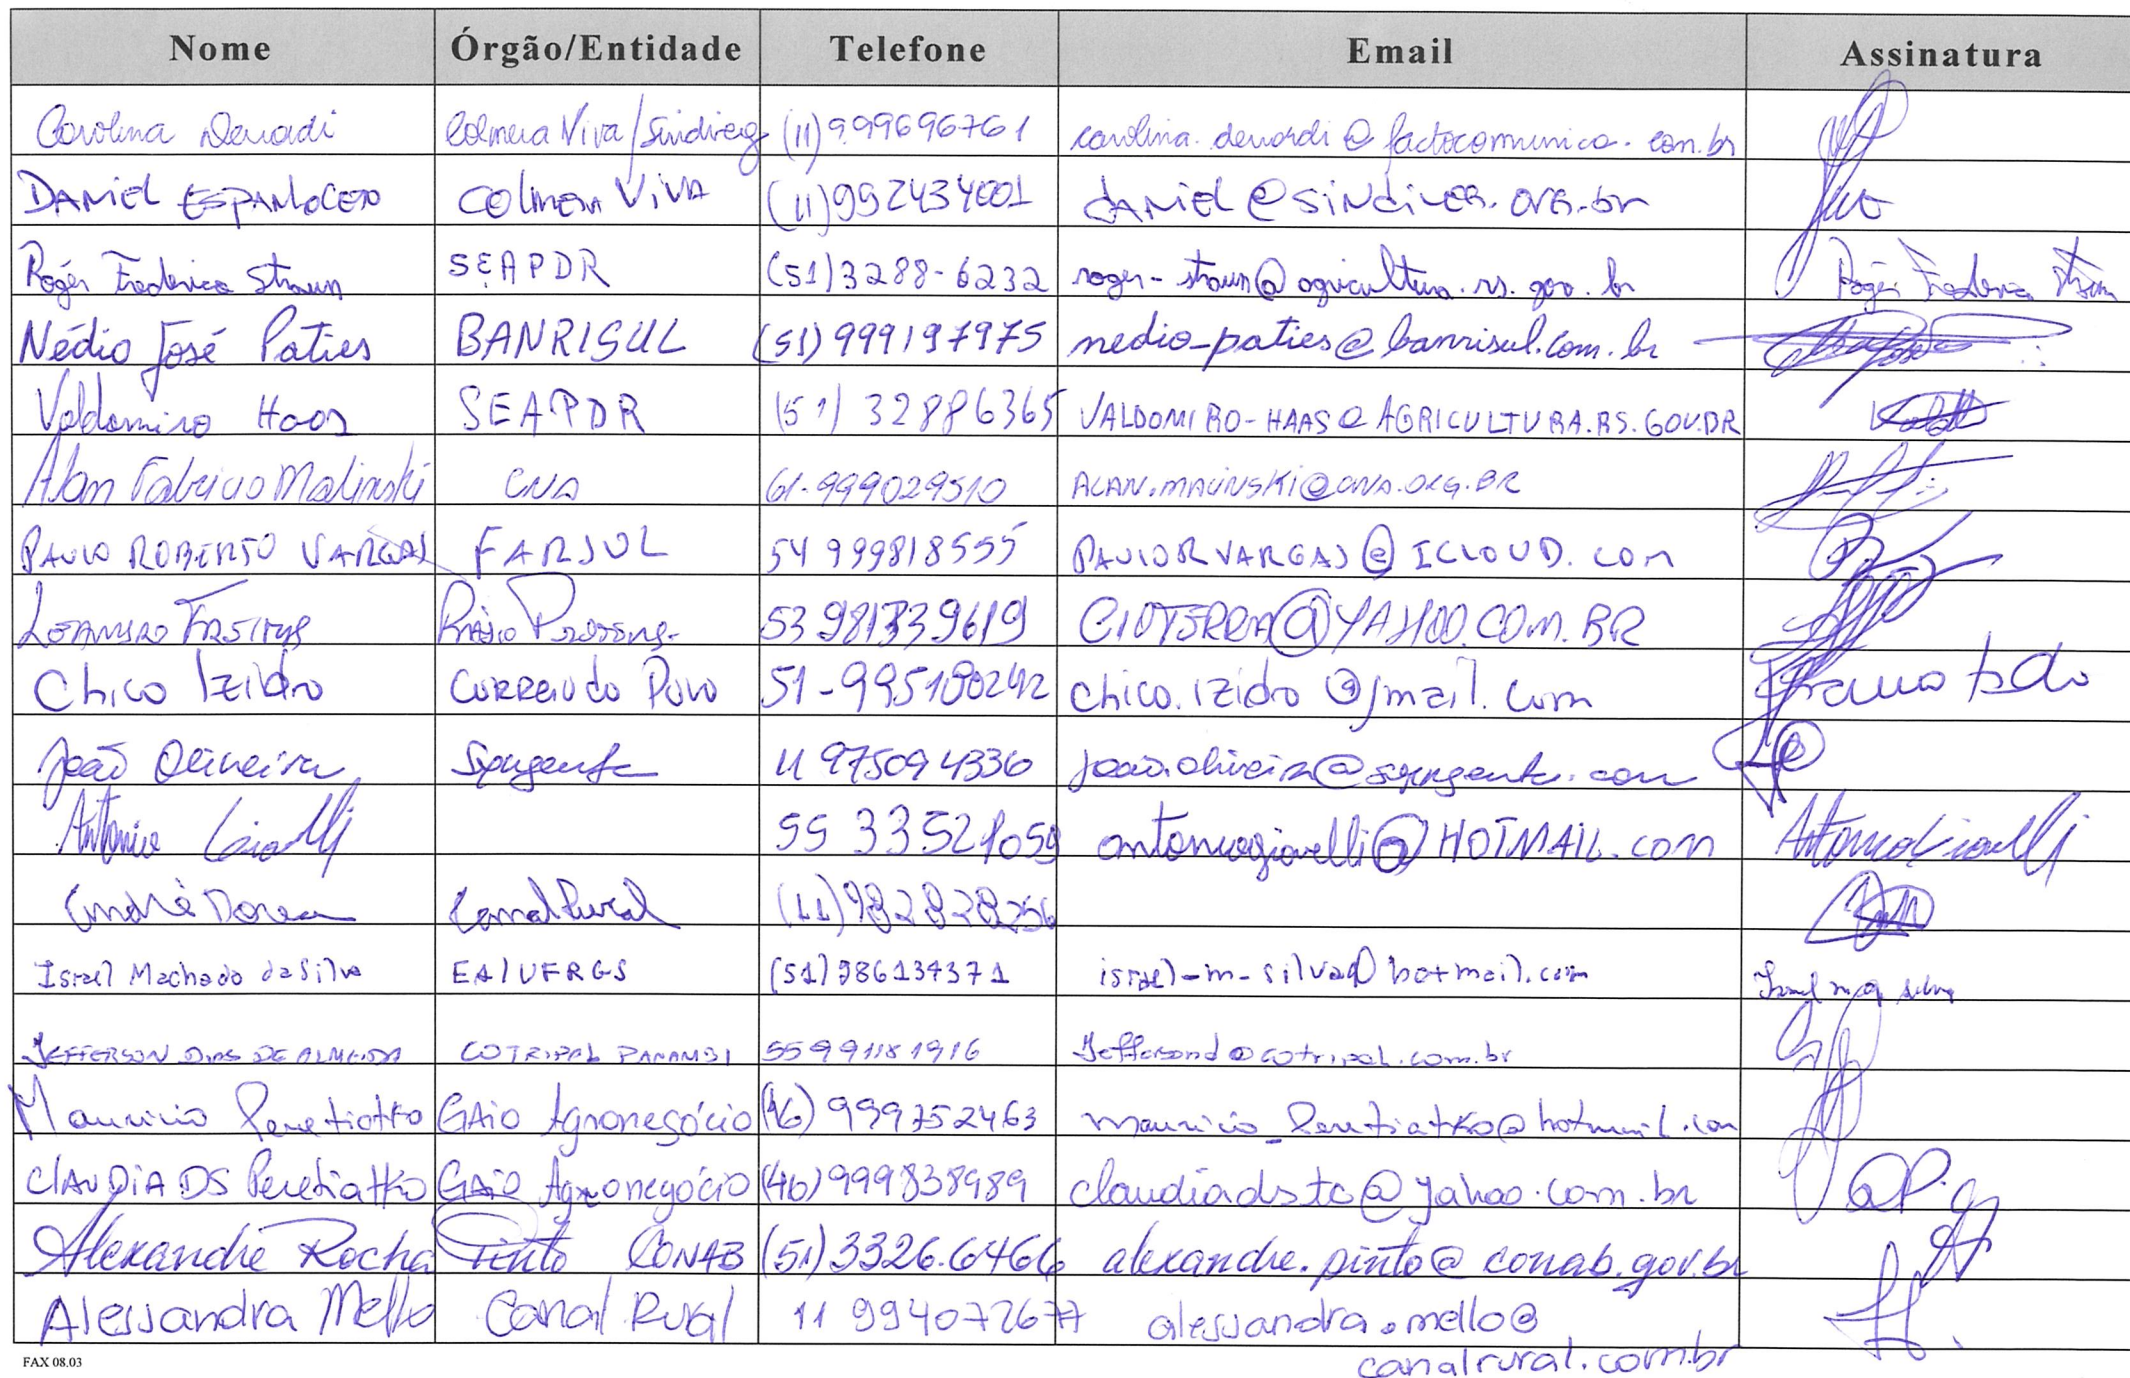 Nome Órgão/Entidade Telefone Email Assinatura
Carolina Denardi Colmeia Viva/Sindiveg (11) 999696761 carolina.denardi@factocomunica.com.br
DANIEL ESPANHOLETO COLMEIA VIVA (11) 992434001 DANIEL@SINDIVEG.ORG.br
Rogér Frederico Strauss SEAPDR (51) 3288-6232 @agricultura.rs.gov.br Rogér Frederico
Nédio José Paties BANRISUL (51) 999197975 nedio_paties@banrisul.com.br
Valdomiro Haas SEAPDR (51) 32886365 VALDOMIRO-HAAS@AGRICULTURA.RS.GOV.BR
Alan Fabricio Malinski CNA 61-999029510 ALAN.MALINSKI@CNA.ORG.BR
PAULO ROBERTO VARGAS FARSUL 54 999818555 PAULORVARGAS@ICLOUD.COM
Freitas Rádio 53 981339619 @YAHOO.COM.BR
Chico Izidro CORREIO do POVO 51-995180242 chico.izidro@gmail.com
João Oliveira 11 975094336
Antonio 55 33521059 @HOTMAIL.com
André Canal Rural (11) 982828256
Israel Machado da Silva EA/UFRGS (51) 986134371 israel-m-silva@hotmail.com
JEFFERSON DIAS DE ALMEIDA COTRIPAL PANAMBI 55991181916 Jeffersond@cotripal.com.br
Mauricio Peretiatko GAIO Agronegócio (46) 999752463 mauricio_Peretiatko@hotmail.com
CLAUDIA DS Peretiatko GAIO Agronegócio (46) 999838989 claudiadstc@yahoo.com.br
Alexandre Rocha Pinto CONAB (51) 3326.6466 alexandre.pinto@conab.gov.br
Alessandra Mello Canal Rural 11 994072677 alessandra.mello@
canalrural.com.br
FAX 08.03